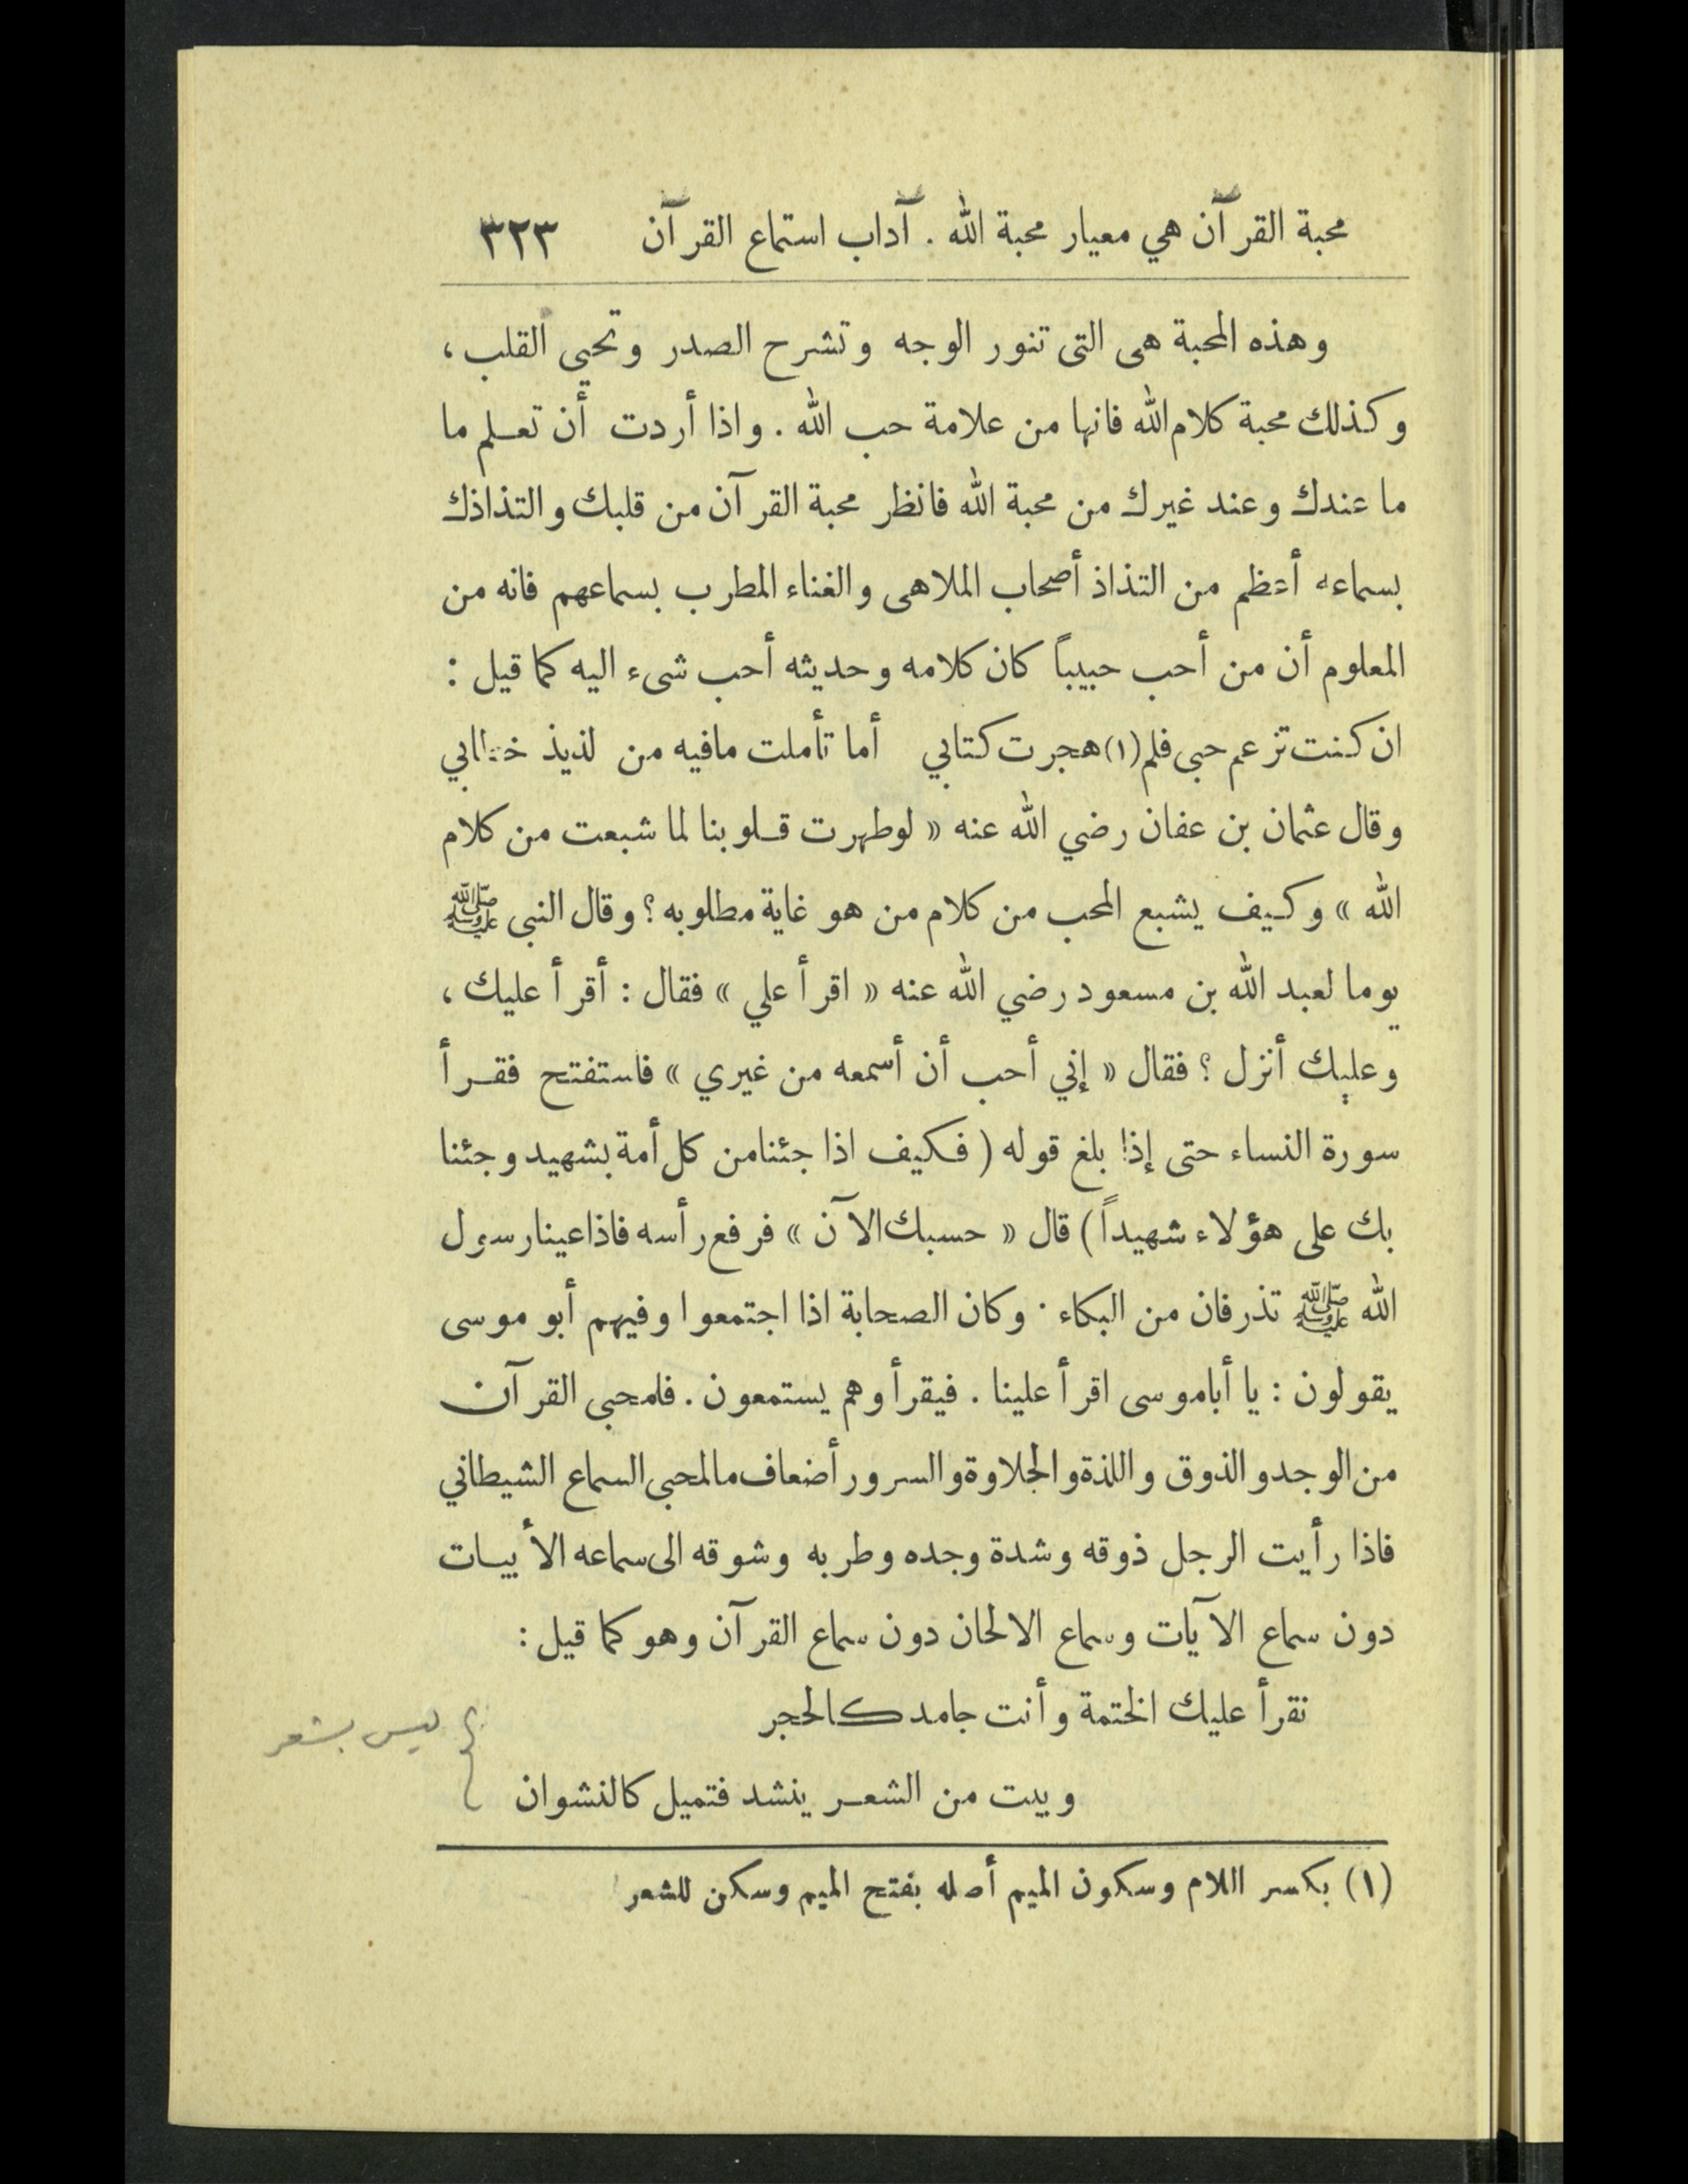 محبة القرآن هي معيار محبة الله . آداب استماع القرآن ٣٢٣
وهذه المحبة هى التى تنور الوجه وتشرح الصدر وتحيى القلب ،
وكذلك محبة كلام الله فانها من علامة حب الله . واذا أردت أن تعلم ما
ما عندك وعند غيرك من محبة الله فانظر محبة القرآن من قلبك والتذاذك
بسماعه أعظم من التذاذ أصحاب الملاهى والغناء المطرب بسماعهم فانه من
المعلوم أن من أحب حبيباً كان كلامه وحديثه أحب شىء اليه كما قيل :
ان كنت تزعم حبى فلم (١) هجرت كتابي أما تأملت مافيه من لذيذ خطابي
وقال عثمان بن عفان رضي الله عنه « لوطهرت قلوبنا لما شبعت من كلام
الله » وكيف يشبع المحب من كلام من هو غاية مطلوبه ؟ وقال النبى ﷺ
يوما لعبد الله بن مسعود رضي الله عنه « اقرأ علي » فقال : أقرأ عليك ،
وعليك أنزل ؟ فقال « إني أحب أن أسمعه من غيري » فاستفتح فقرأ
سورة النساء حتى إذا بلغ قوله ( فكيف اذا جئنا من كل أمة بشهيد وجئنا
بك على هؤلاء شهيداً ) قال « حسبك الآن » فرفع رأسه فاذا عينا رسول
الله ﷺ تذرفان من البكاء . وكان الصحابة اذا اجتمعوا وفيهم أبو موسى
يقولون : يا أبا موسى اقرأ علينا . فيقرأ وهم يستمعون . فلمحبى القرآن
من الوجد والذوق واللذة والحلاوة والسرور أضعاف ما لمحبى السماع الشيطاني
فاذا رأيت الرجل ذوقه وشدة وجده وطربه وشوقه الى سماعه الأبيات
دون سماع الآيات وسماع الالحان دون سماع القرآن وهو كما قيل :
نقرأ عليك الختمة وأنت جامد كالحجر
ليس بشعر
وبيت من الشعر ينشد فتميل كالنشوان
(١) بكسر اللام وسكون الميم أصله بفتح الميم وسكن للشعر